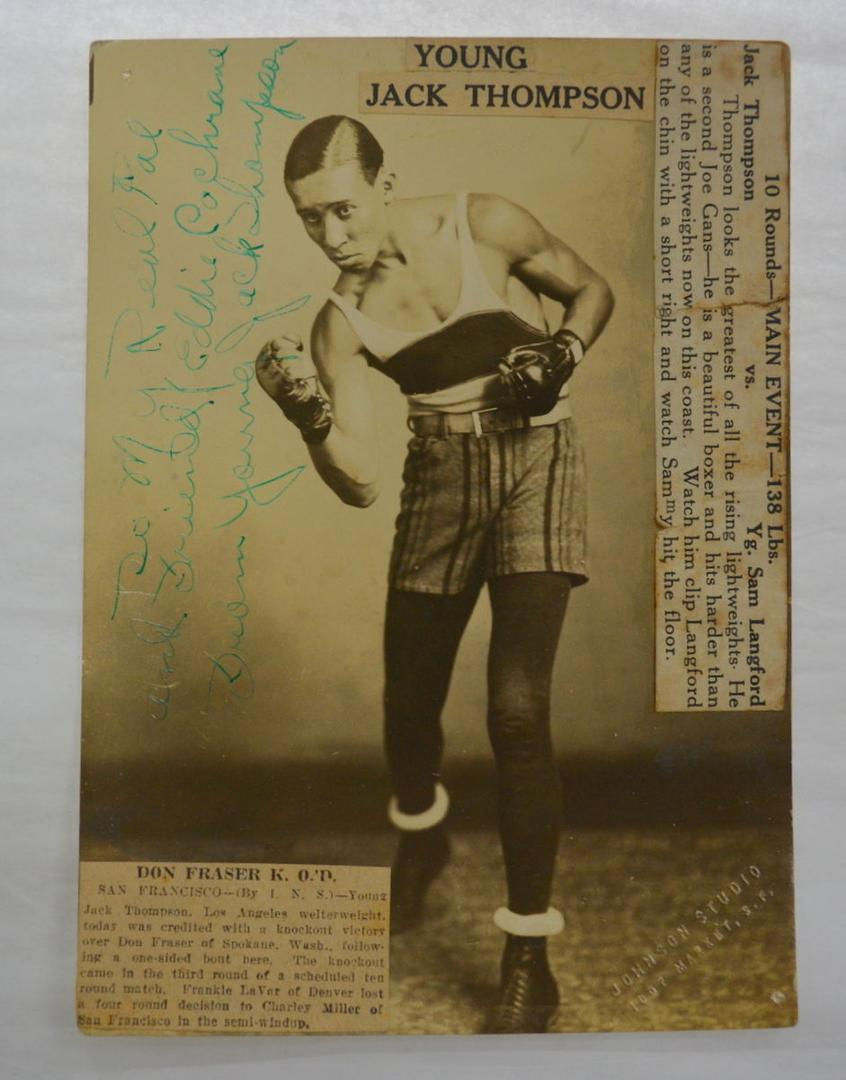 YOUNG
JACK THOMPSON
10 Rounds—MAIN EVENT—138 Lbs.
Jack Thompson vs. Yg. Sam Langford
Thompson looks the greatest of all the rising lightweights. He
is a second Joe Gans—he is a beautiful boxer and hits harder than
any of the lightweights now on this coast. Watch him clip Langford
on the chin with a short right and watch Sammy hit the floor.
To My Real Pal
and Friend Eddie Cochrane
From Young Jack Thompson
DON FRASER K. O.'D.
SAN FRANCISCO—(By I. N. S.)—Young
Jack Thompson, Los Angeles welterweight,
today was credited with a knockout victory
over Don Fraser of Spokane, Wash., follow-
ing a one-sided bout here. The knockout
came in the third round of a scheduled ten
round match. Frankie LaVar of Denver lost
a four round decision to Charley Miller of
San Francisco in the semi-windup.
JOHNSON STUDIO
1007 MARKET, S.F.